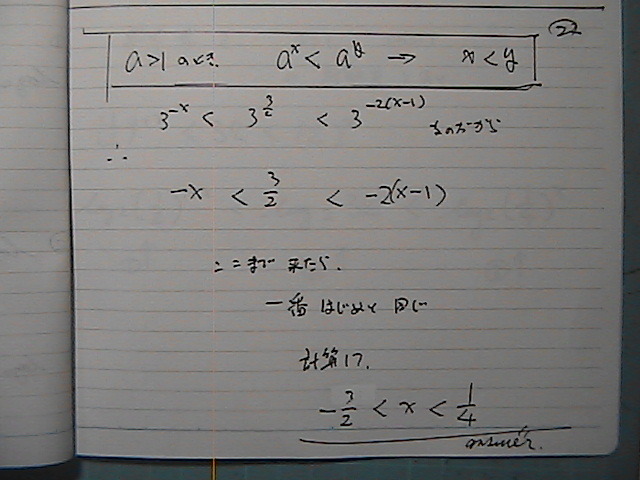 22
a>1 のとき. a^x < a^y → x < y
3^{-x} < 3^{3/2} < 3^{-2(x-1)} なのだから
∴
-x < 3/2 < -2(x-1)
ここまで 来たら.
一番 はじめと 同じ
計算け.
-3/2 < x < 1/4
answer.